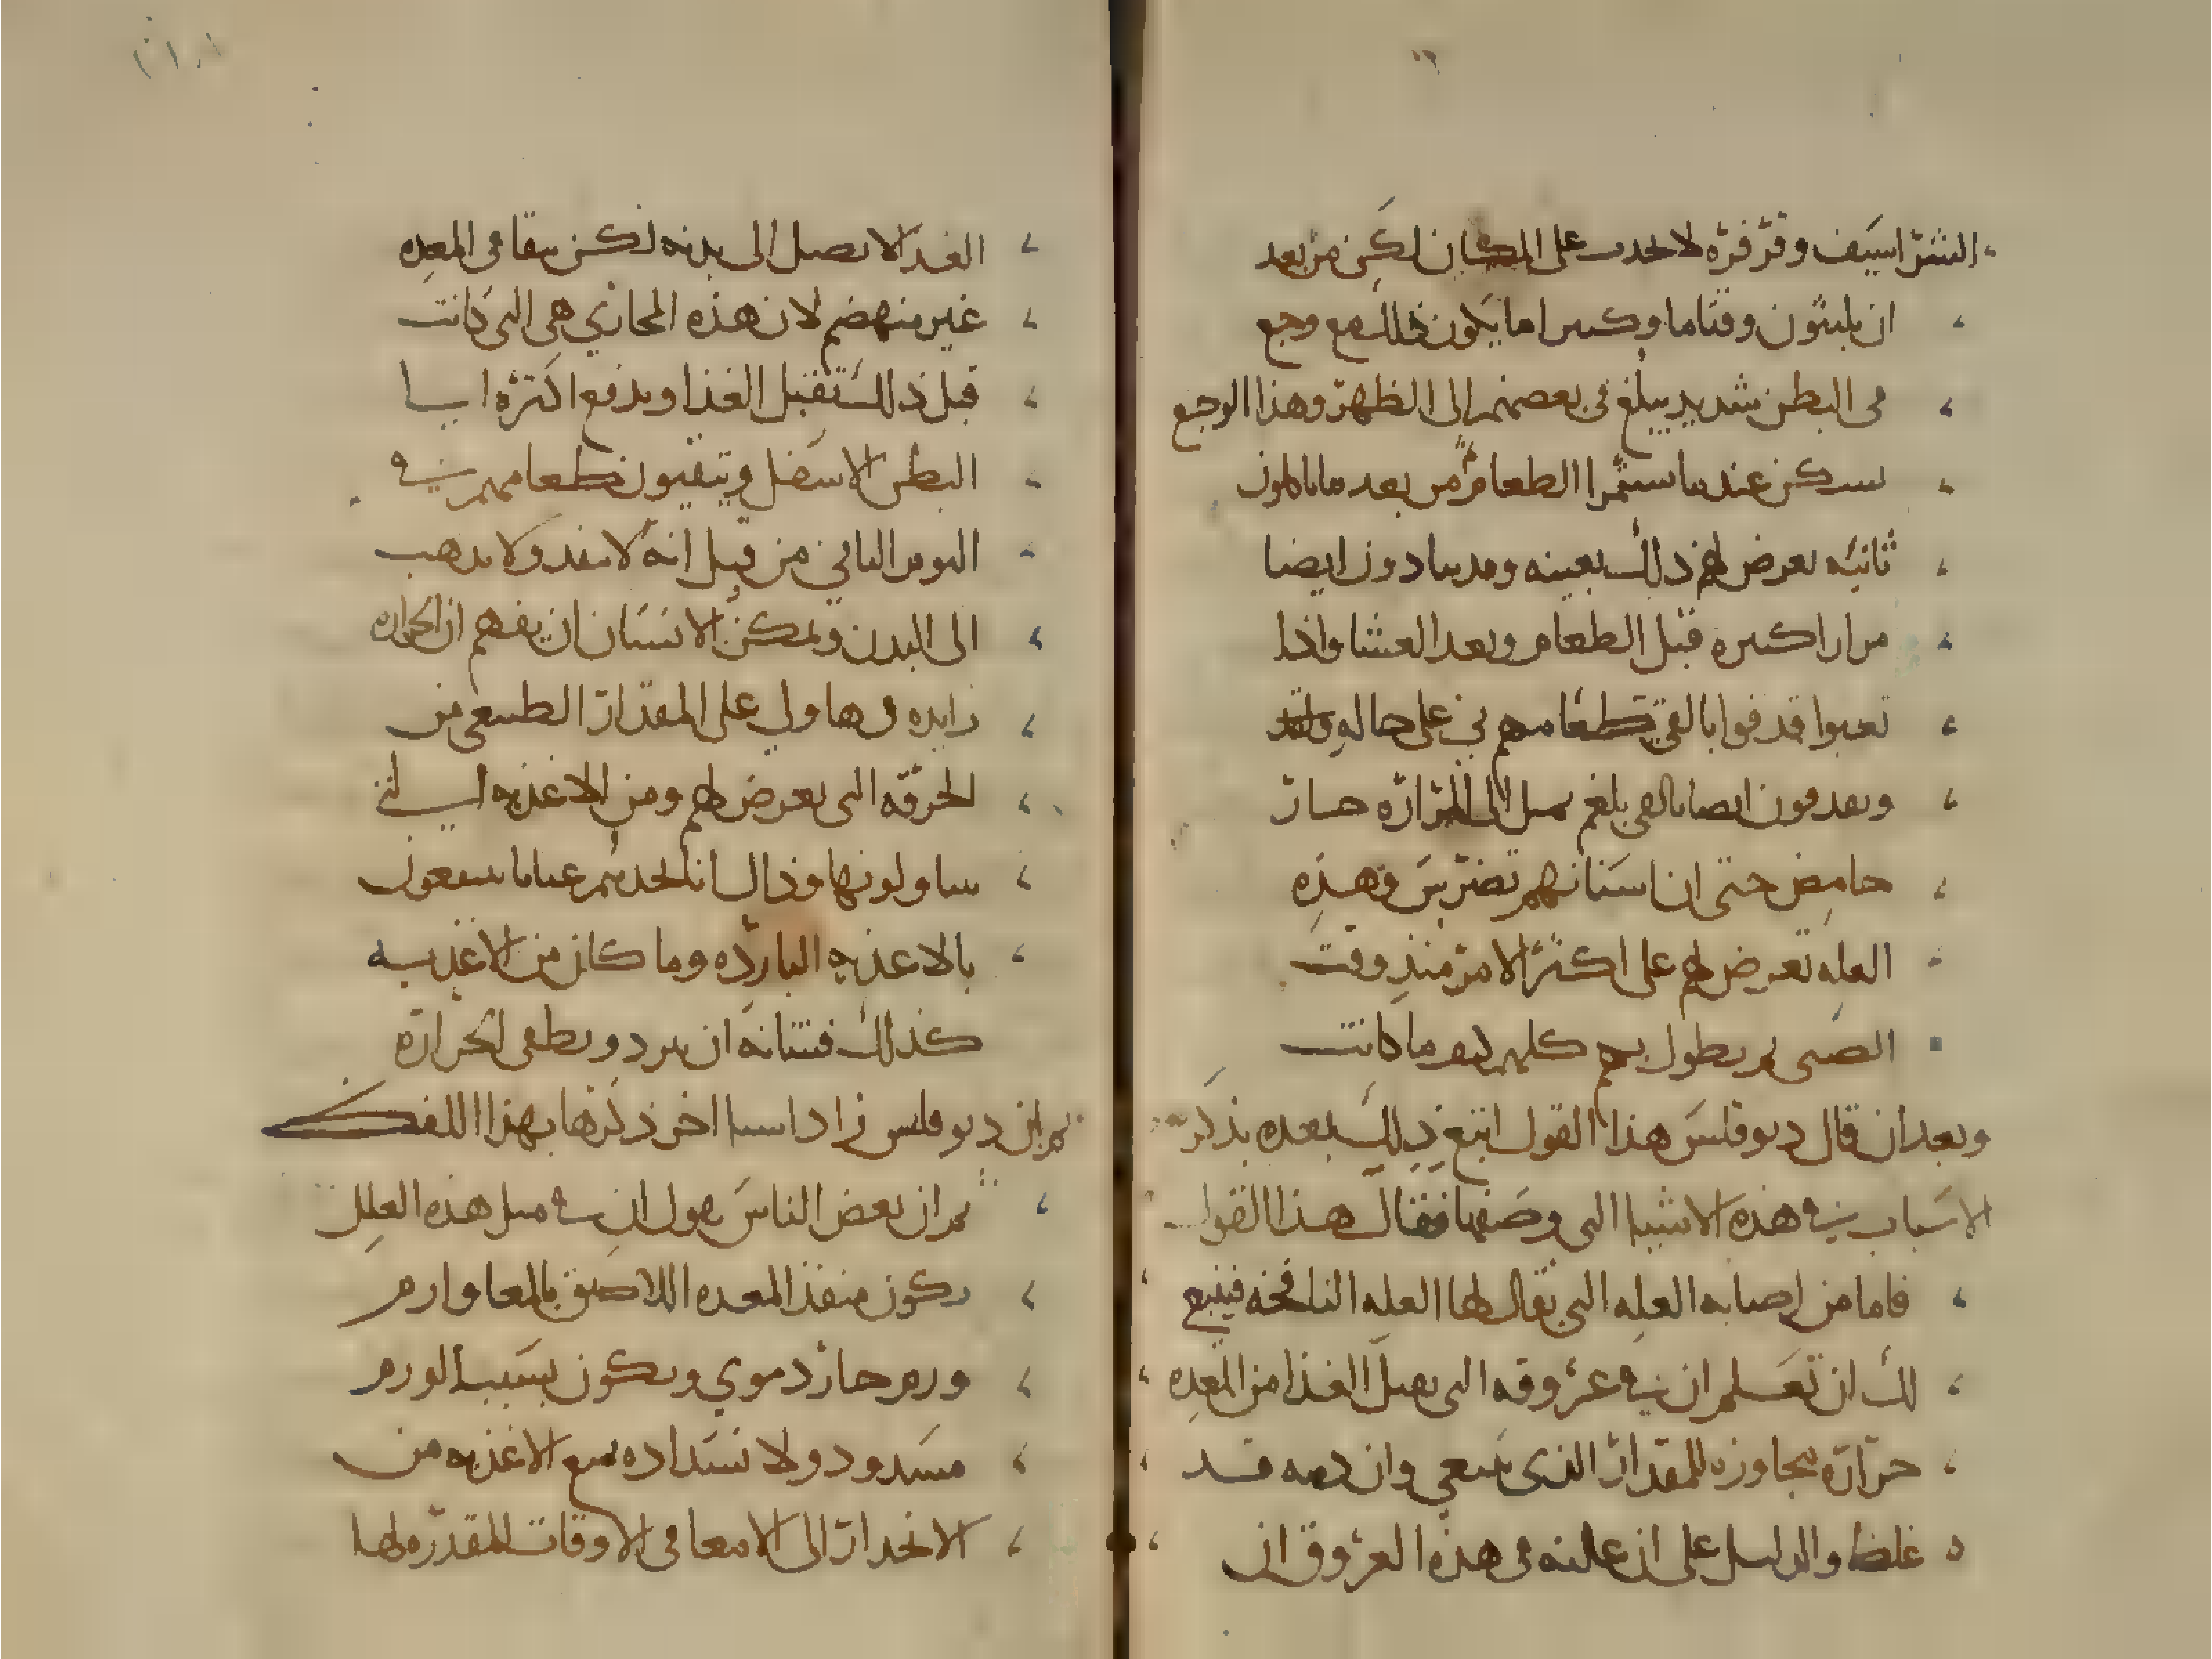 الشراسيف وقرقره لا تحدث على المكان لكن من بعد
ان يلبثون وقتا ما وكثيرا ما يكون ذلك مع وجع
في البطن شديد يبلغ في بعضهم الى الظهر وهذا الوجع
يسكن عندما يستمرا الطعام ثم من بعد ما ياكلون
ثانيه يعرض لهم ذلك بعينه وقد يتاذون ايضا
مرارا كثيره قبل الطعام وبعد العشا واذا
تعبوا قذفوا بالقي طعامهم ني على حاله
ويقذفون ايضا بالقي بلغم يميل الى المراره حار
حامض حتى ان اسنانهم تضرس وهذه
العله تعرض لهم على اكثر الامر منذ وقت
الصبي ثم يطول بهم كلهم كيف ما كانت
وبعد ان قال ديوقلس هذا القول اتبع ذلك بعده بذكر
الاسباب في هذه الاشيا التي وصفها فقال هذا القول
فاما من اصابه العله التي يقال لها العله النافخه فينبغي
لك ان تعلم ان في عروقه التي تقبل الغذا من المعده
حراره مجاوزه للمقدار الذي ينبغي وان دمه قد
غلظ والدليل على ان علته في هذه العروق ان
الغذا لا يصل الى بدنه لكن يبقا في المعده
غير منهضم لان هذه المجاري هي التي كانت
قبل ذلك تقبل الغذا ويدفع اكثره الى
البطن الاسفل ويتقيون طعامهم في
اليوم الثاني من قبل انه لا ينفد ولا يذهب
الى البدن ويمكن الانسان ان يفهم ان الحراره
زايده في هاولي على المقدار الطبيعي من
الحرقه التي تعرض لهم ومن الاغذيه التي
يتناولونها وذلك انا نجدهم عيانا ينتفعون
بالاغذيه البارده وما كان من الاغذيه
كذلك فشانه ان يبرد ويطفي الحراره
ثم ان ديوقلس زاد اشيا اخر ذكرها بهذا اللفظ
ثم ان بعض الناس يقول ان في مثل هذه العلل
يكون منفذ المعده اللاصق بالمعا وارم
ورم حار دموي ويكون بسبب الورم
مسدود ولانسداده يمنع الاغذيه من
الانحدار الى الامعا في الاوقات المقدره لها